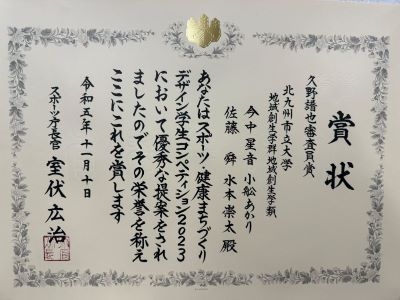 賞状
久野譜也審査員賞
北九州市立大学
地域創生学群地域創生学類
今中星音 小舩あかり
佐藤舜 水本崇太 殿
あなたはスポーツ・健康まちづくり
デザイン学生コンペティション2023
において優秀な提案をされ
ましたのでその栄誉を称え
ここにこれを賞します
令和五年十一月十日
スポーツ庁長官 室伏広治